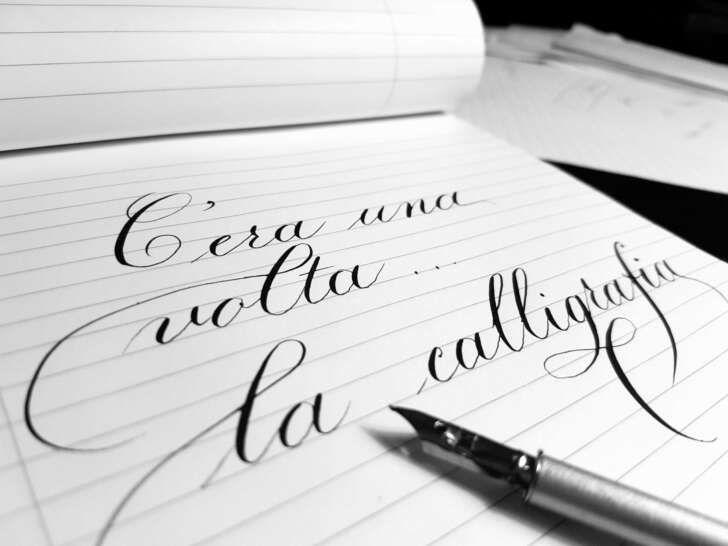 C'era una
volta ...
la calligrafia